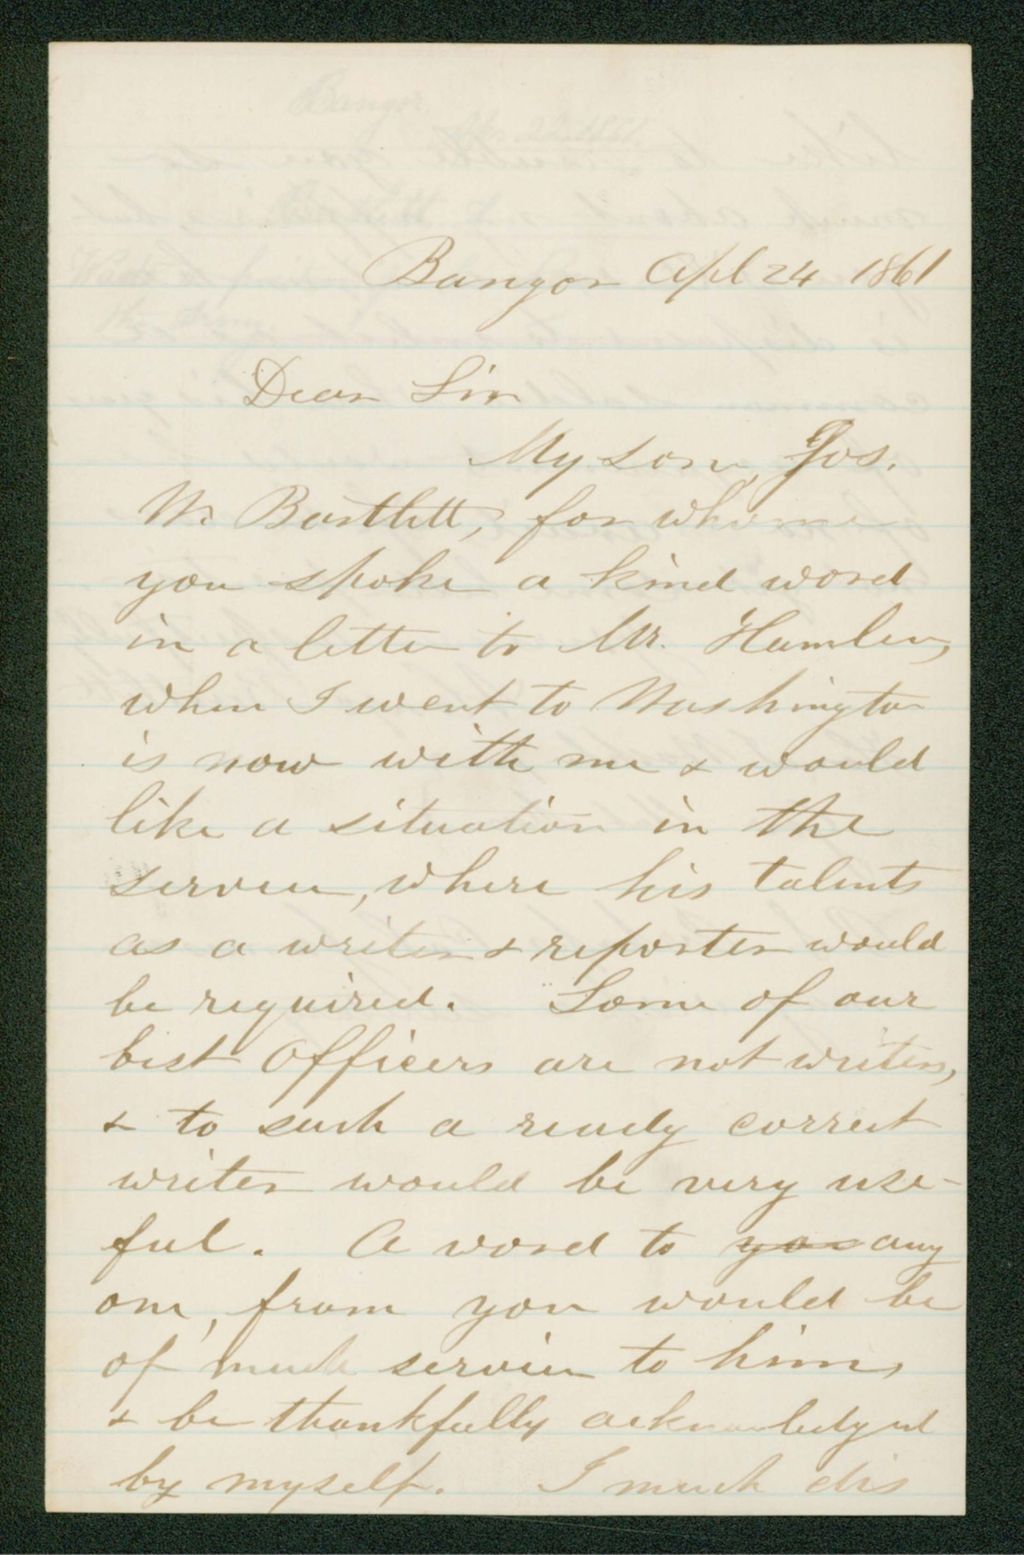 Bangor Apl 24 1861
Dear Sir
My son, Jos.
W. Bartlett, for whom
you spoke a kind word
in a letter to Mr. Hamlin,
when I went to Washington
is now with me & would
like a situation in the
service, where his talents
as a writer & reporter would
be required. Some of our
best Officers are not writers,
& to such a ready correct
writer would be very use-
ful. A word to you any
one, from you would be
of much service to him,
& be thankfully acknowledged
by myself. I much dis